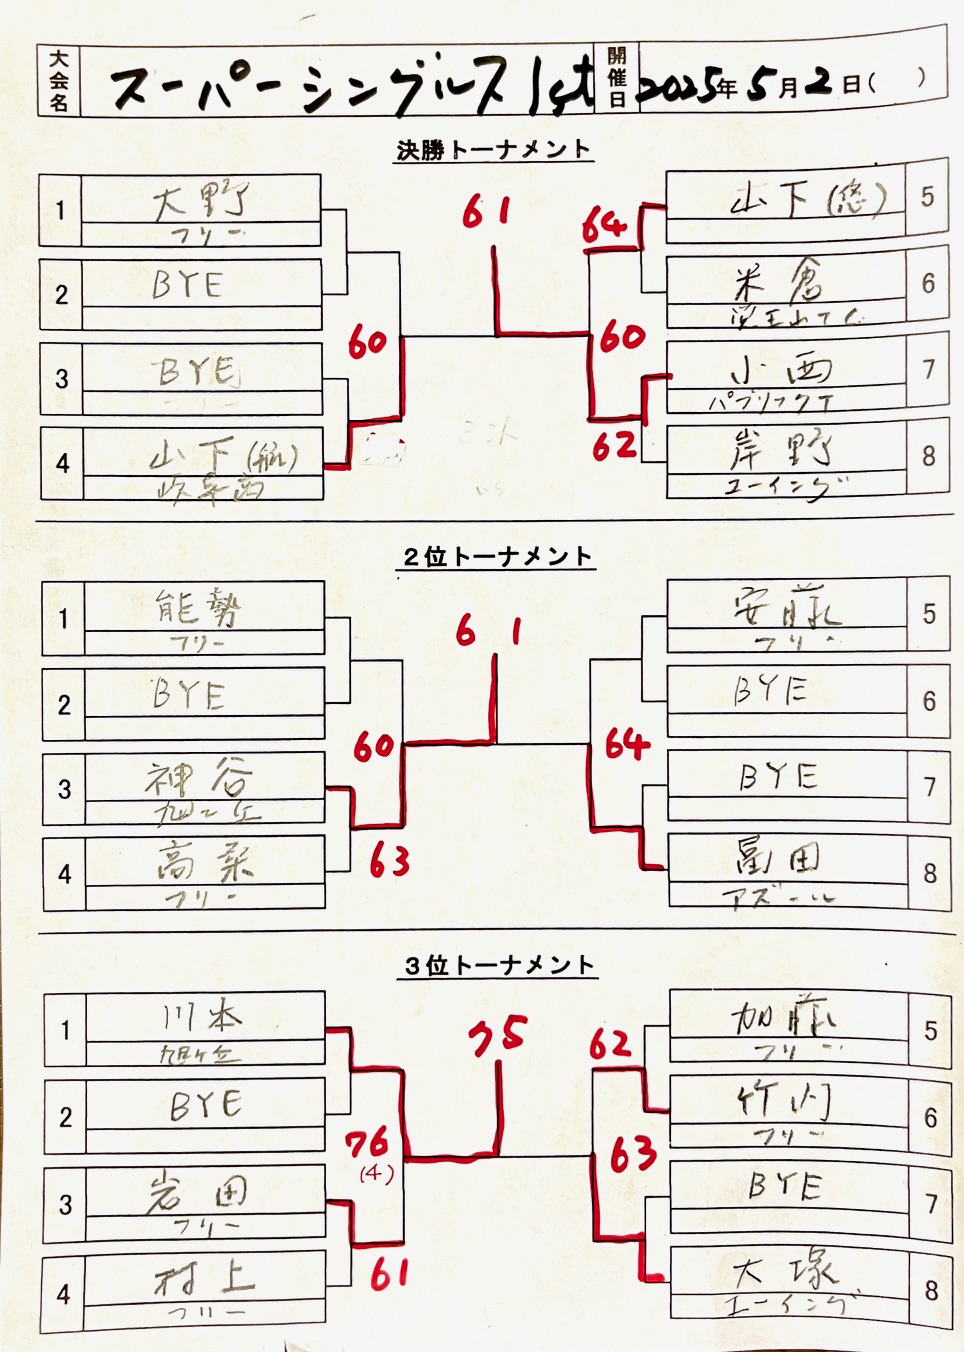 大会名 スーパーシングルス 1st 開催日 2025年5月2日( )
決勝トーナメント
1 大野
フリー
2 BYE
3 BYE
4 山下(航)
岐阜西
60
61
64
60
62
山下(悠) 5
米倉 6
小西 7
パブリックT
岸野 8
エーイング
2位トーナメント
1 能勢
フリー
2 BYE
3 神谷
旭ヶ丘
4 高桑
フリー
60
63
6 1
64
安藤 5
フリー
BYE 6
BYE 7
冨田 8
アズール
3位トーナメント
1 川本
旭ヶ丘
2 BYE
3 岩田
フリー
4 村上
フリー
76
(4)
61
75
62
63
加藤 5
フリー
竹内 6
フリー
BYE 7
大塚 8
エーイング